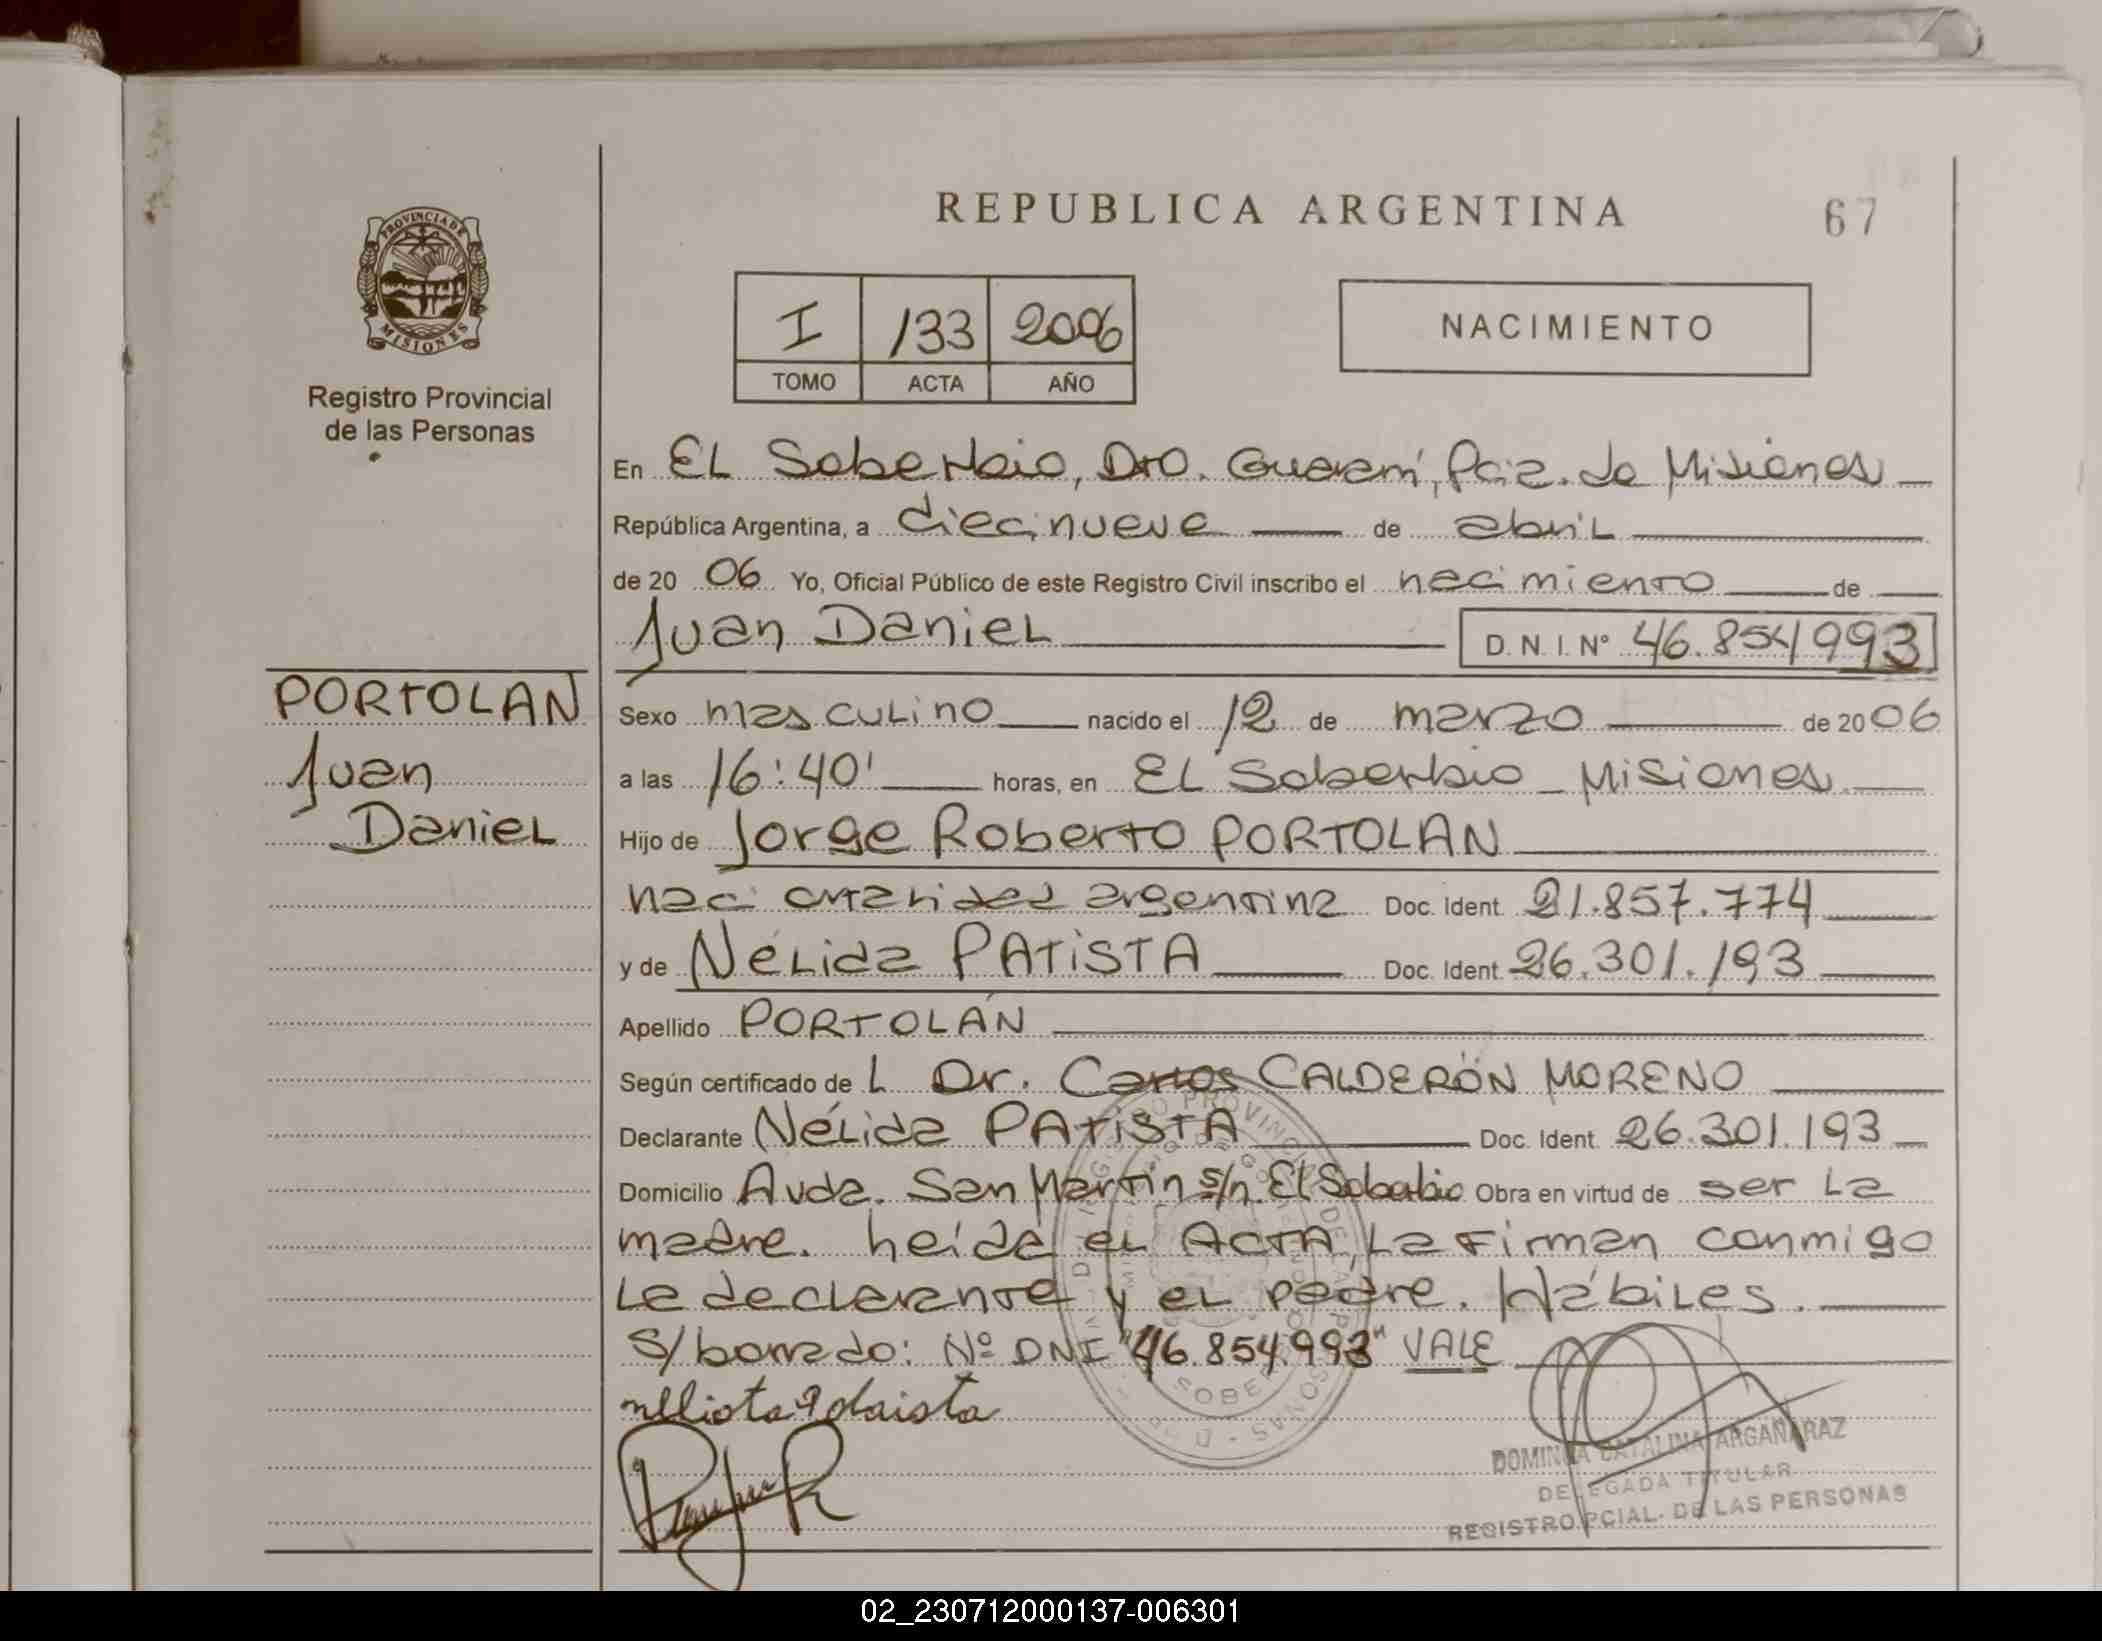 REPUBLICA ARGENTINA
67
PROVINCIA DE
MISIONES
Registro Provincial
de las Personas
I /33 2006
TOMO ACTA AÑO
NACIMIENTO
En EL Soberbio, Dto. Guaraní, Pcia. de Misiones
República Argentina, a diecinueve de abril
de 20 06 Yo, Oficial Público de este Registro Civil inscribo el nacimiento de
Juan Daniel D. N. I. Nº 46.854993
PORTOLAN
Juan
Daniel
Sexo masculino nacido el 12 de marzo de 20 06
a las 16:40' horas, en EL Soberbio _ Misiones
Hijo de Jorge Roberto PORTOLAN
nacionalidad argentina Doc. Ident. 21.857.774
y de Nélida PATISTA Doc. Ident. 26.301.193
Apellido PORTOLAN
Según certificado de L Dr. Carlos CALDERÓN MORENO
Declarante Nélida PATISTA Doc. Ident. 26.301.193
Domicilio Avda. San Martín s/n. El Soberbio Obra en virtud de ser La
madre. Leída el ACTA, La firman conmigo
La declarante y el padre. Hábiles.
S/borrado: Nº DNI "46.854.993" VALE
DOMINGA CATALINA ARGAÑARAZ
DELEGADA TITULAR
REGISTRO PCIAL. DE LAS PERSONAS
02_230712000137-006301